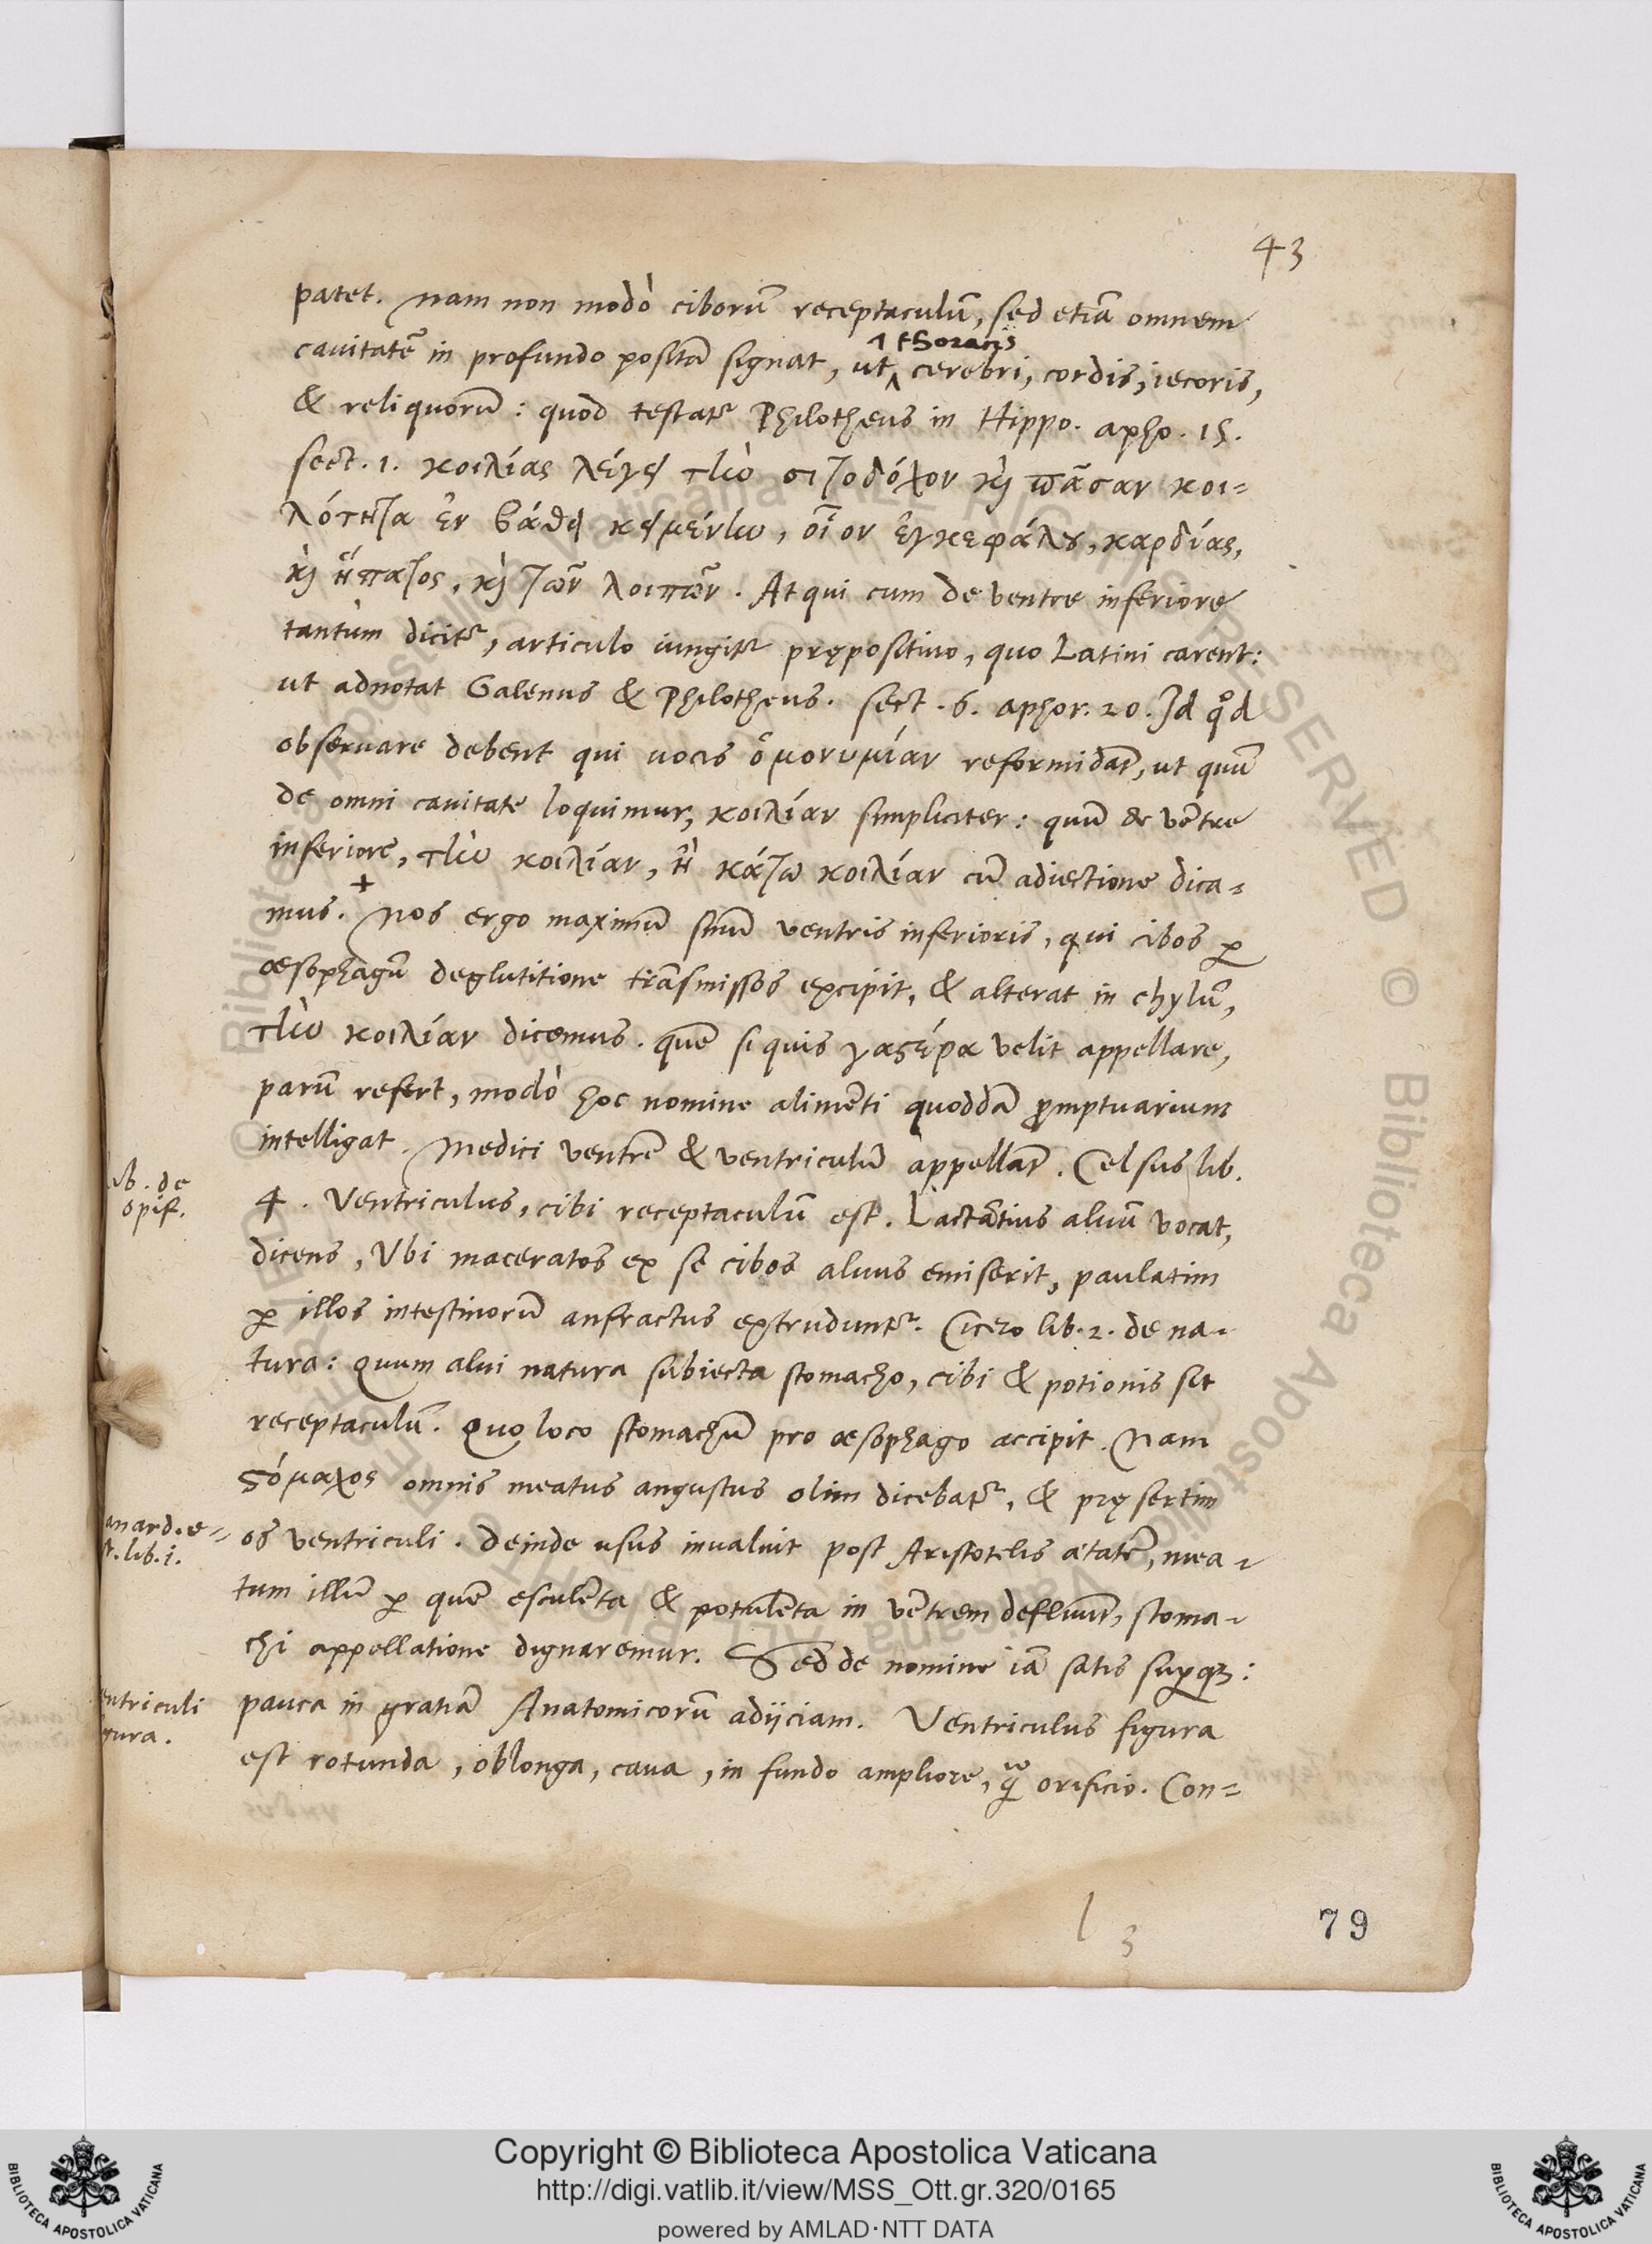 43
patet. Nam non modò ciborũ receptaculũ, sed etiã omnem
cauitatẽ in profundo positã signat, ut thoracis cerebri, cordis, iecoris,
& reliquorũ: quod testatr Philotheus in Hippo. apho. 15.
sect. 1. κοιλίας λέγει τὴν σιτοδόχον καὶ πᾶσαν κοι=
λότητα ἐν βάθει κειμένην, οἷον ἐγκεφάλου, καρδίας,
καὶ ἥπατος, καὶ τῶν λοιπῶν. At qui cum de ventre inferiore
tantùm dicitr, articulo iungitr prępositiuo, quo Latini carent:
ut adnotat Galenus & Philotheus. sect. 6. aphor. 20. Id qd
obseruare debent qui uocis ὁμονυμίαν reformidãt, ut quũ
de omni cauitate loquimur, κοιλίαν simpliciter: quũ de vẽtre
inferiore, τὴν κοιλίαν, ἢ κάτω κοιλίαν cũ adiectione dica=
mus. + Nos ergo maximũ sinũ ventris inferioris, qui cibos ꝑ
œsophagũ deglutitione trãsmissos excipit, & alterat in chylũ,
τὴν κοιλίαν dicemus. quẽ si quis γαϛέρα velit appellare,
parũ refert, modò hoc nomine alimẽti quoddã ꝓmptuarium
intelligat. Medici ventrẽ & ventriculũ appellãt. Celsus lib.
4. Ventriculus, cibi receptaculũ est. Lactãtius aluũ vocat,
dicens, Vbi maceratos ex se cibos aluus emiserit, paulatim
ꝑ illos intestinorũ anfractus extruduntr. Cicero lib. 2. de na-
tura: Quum alui natura subiecta stomacho, cibi & potionis sit
receptaculũ. Quo loco stomachũ pro œsophago accipit. Nam
ϛόμαχος omnis meatus angustus olim dicebatr, & pręsertim
os ventriculi. Deinde usus inualuit post Aristotelis ætatẽ, mea-
tum illũ ꝑ quẽ esculẽta & potulẽta in vẽtrem defluũt, stoma-
chi appellatione dignaremur. Sed de nomine iã satis suꝑqꝫ:
pauca in gratiã Anatomicorũ adijciam. Ventriculus figura
est rotunda, oblonga, caua, in fundo ampliore, orificio. Con=
lib. de
opif.
anard. e=
lib. i.
entriculi
gura.
l 3
79
© Biblioteca Apostolica Vaticana ALL RIGHTS RESERVED © Biblioteca Apostolica Vaticana ALL RIGHTS RESERVED
Copyright © Biblioteca Apostolica Vaticana
http://digi.vatlib.it/view/MSS_Ott.gr.320/0165
powered by AMLAD·NTT DATA
BIBLIOTECA APOSTOLICA VATICANA
BIBLIOTECA APOSTOLICA VATICANA